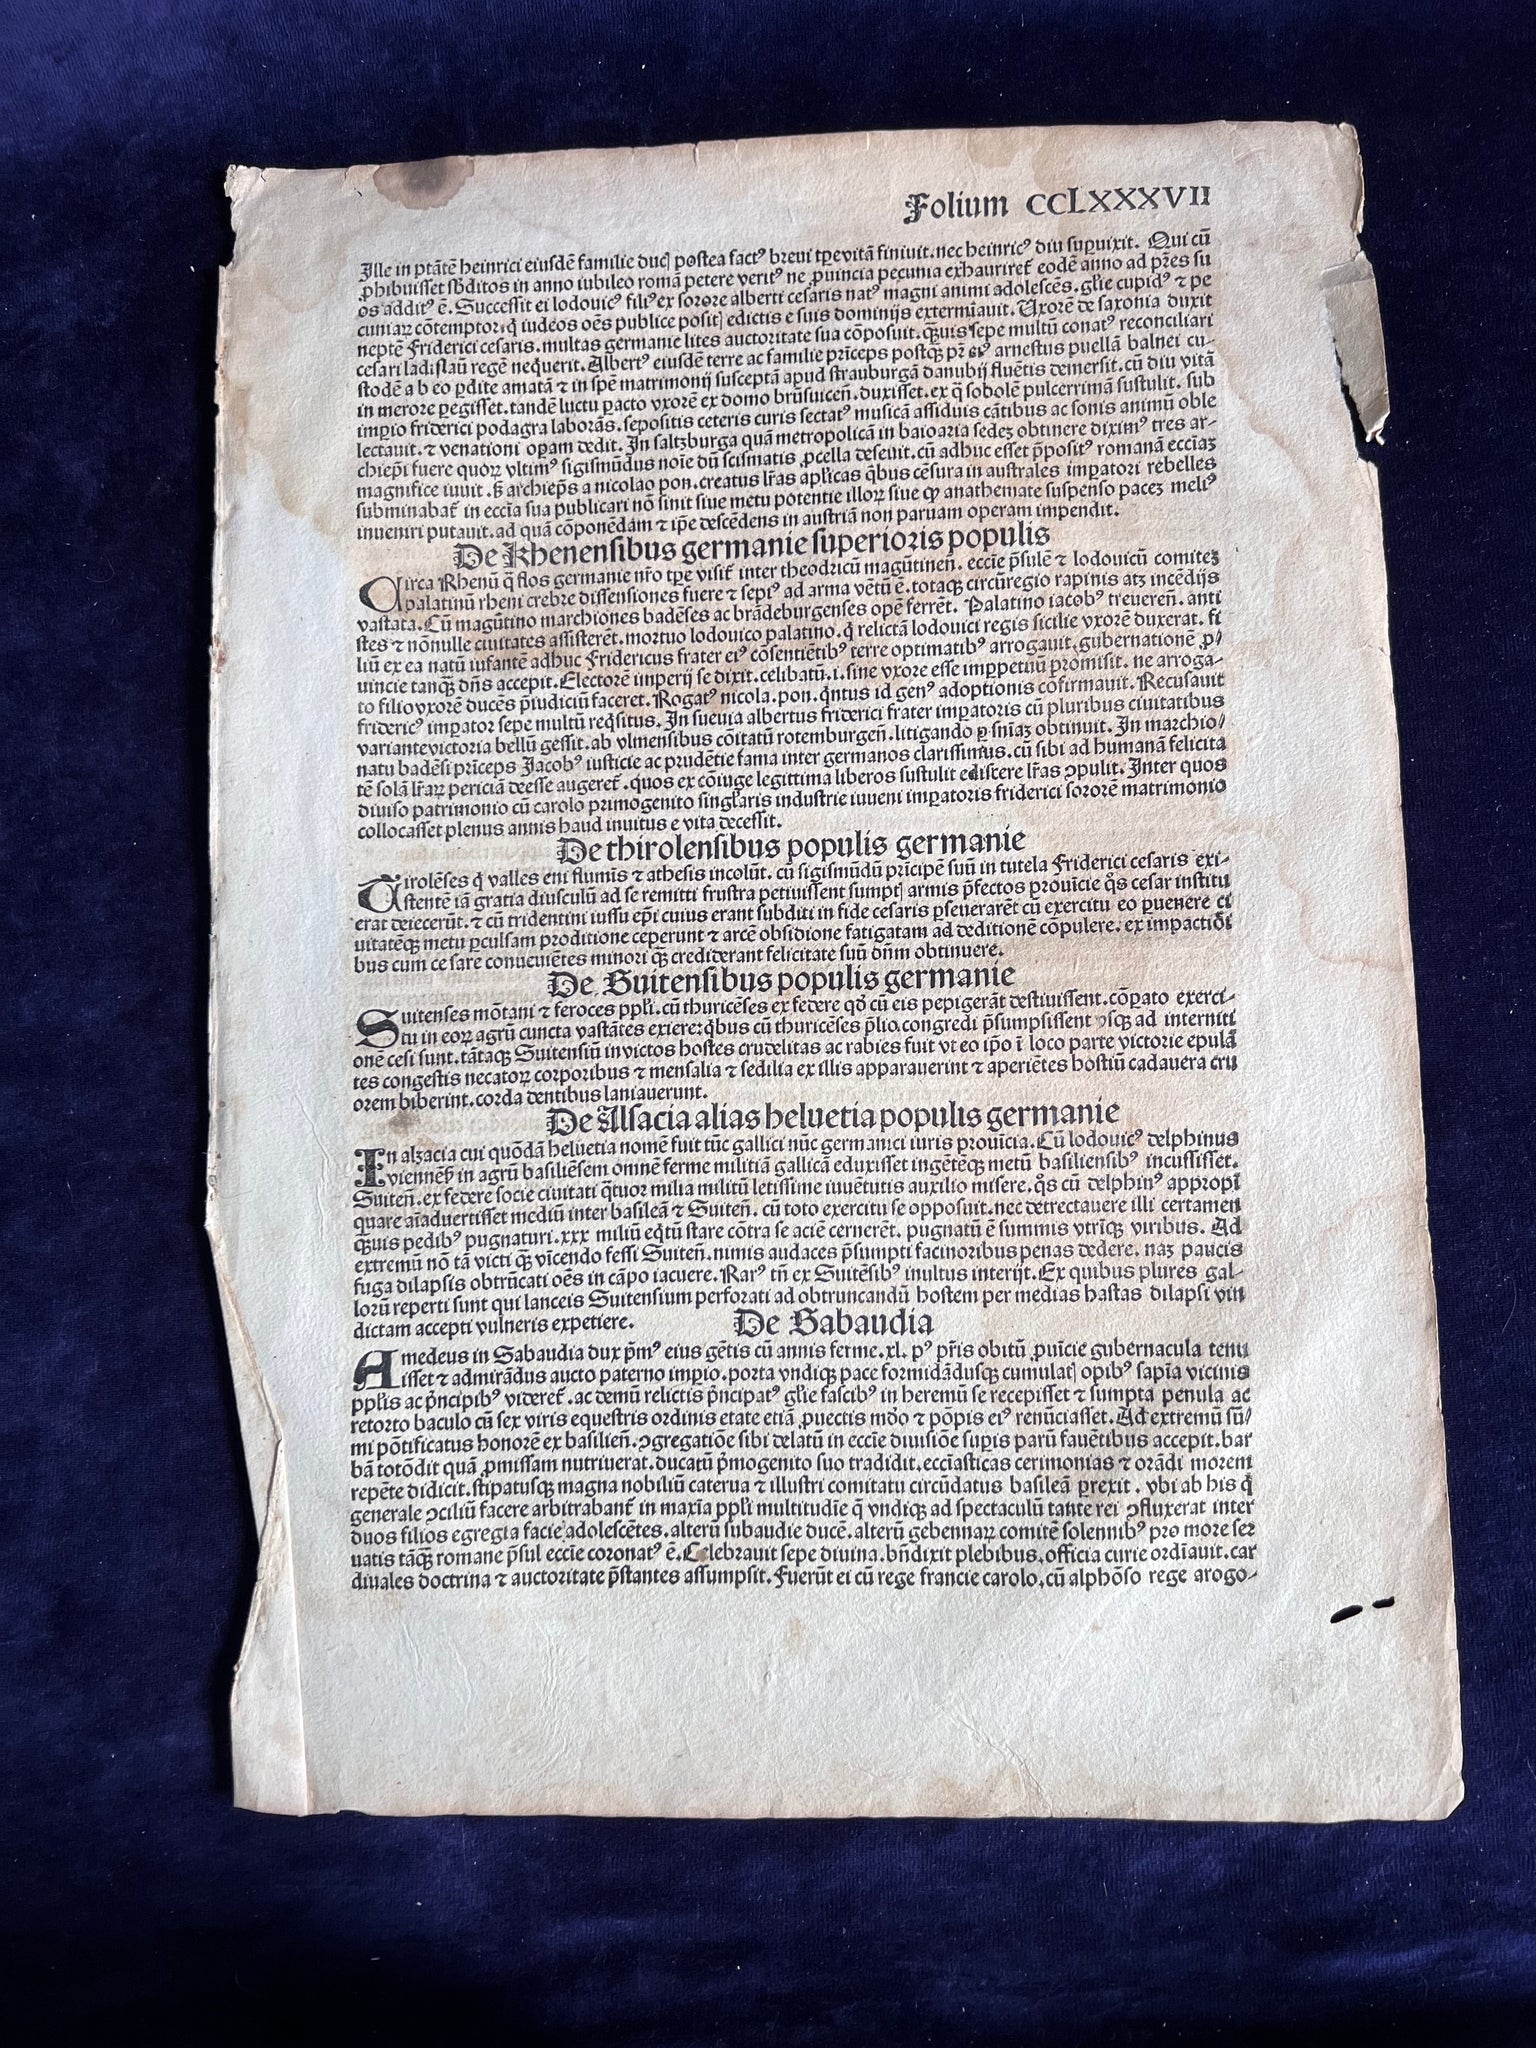 Folium CCLXXXVII
Ille in ptāte heinrici eiusdē familie duc̣ postea fact⁹ breui tp̄e vitā finiuit. nec heinric⁹ diu supuixit. Qui cū
phibuisset sb̄ditos in anno iubileo romā petere verit⁹ ne puincia pecunia exhauriret̄ eodē anno ad pr̄es su
os addit⁹ ē. Successit ei lodouic⁹ fili⁹ ex sorore alberti cesaris nat⁹ magni animi adolescēs. gl̄ie cupid⁹ ⁊ pe
cuniaꝝ cōtemptor. q̄ iudeos oēs publice posit̄ edictis e suis dominijs extermīauit. Uxorē de saxonia duxit
neptē Friderici cesaris. multas germanie lites auctoritate sua cōposuit. q̄uis sepe multū conat⁹ reconciliari
cesari ladislaū regē nequerit. Albert⁹ eiusdē terre ac familie prīceps postq̄ pr̄ ei⁹ arnestus puellā balnei cu-
stodē a b eo pdite amatā ⁊ in spē matrimonij susceptā apud straubturgā danubij fluētis demersit. cū diu vitā
in merore pegisset. tandē luctu pacto vxorē ex domo brūsuicen̄. duxisset. ex q̄ sobolē pulcerrimā sustulit. sub
impio friderici podagra laborās. sepositis ceteris curis sectat⁹ musicā assiduis cātibus ac sonis animū oble
lectauit. ⁊ venationi opam dedit. In saltzburga quā metropolicā in baioaria sedeꝫ obtinere dixim⁹ tres ar-
chiep̄i fuere quoꝝ vltim⁹ sigismūdus noīe dū scismatis pcella deseuit. cū adhuc esset p̄posit⁹ romanā ecciāꝫ
magnifice iuuit. s̄ archiep̄s a nicolao pon. creatus lr̄as apl̄icas q̄bus cēsura in australes impatori rebelles
subminabat̄ in eccīa sua publicari nō sinit siue metu potentie illoꝝ siue qp anathemate suspenso paceꝫ meli⁹
inueniri putauit. ad quā cōponēdam ⁊ ip̄e descēdens in austriā non paruam operam impendit.
De Rhenensibus germanie superioris populis
Circa Rhenū q̄ flos germanie nr̄o tp̄e visit̄ inter theodricū magūtinen̄. eccīe p̄sulē ⁊ lodouicū comiteꝫ
palatinū rheni crebre dissensiones fuere ⁊ sepi⁹ ad arma vētū ē. totaqꝫ circūregio rapinis atꝫ incēdijs
vastata. Cū magūtino marchiones badēses ac brādeburgenses opē ferrēt. Palatino iacob⁹ treueren̄. anti
stes ⁊ nōnulle ciuitates assisterēt. mortuo lodouico palatino. q̄ relictā lodouici regis sicilie vxorē duxerat. fi
liū ex ea natū infantē adhuc Fridericus frater ei⁹ cōsentiētib⁹ terre optimatib⁹ arrogauit. gubernationē p/
uincie tanq̄ dn̄s accepit. Electorē imperij se dixit. celibatū. i. sine vxore esse impetuū promisit. ne arroga-
to filio vxorē ducēs p̄iudiciū faceret. Rogat⁹ nicola. pon. q̄ntus id gen⁹ adoptionis cōfirmauit. Recusauit
frideric⁹ impator sepe multū reqsitus. In sueuia albertus friderici frater impatoris cū pluribus ciuitatibus
variante victoria bellū gessit. ab vlmensibus cōitatū rotemburgen̄. litigando p sn̄iaꝫ obtinuit. In marchio/
natu badēsi prīceps Jacob⁹ iusticie ac prudētie fama inter germanos clarissimus. cū sibi ad humanā felicita
tē solā lr̄aꝝ periciā deesse augeret̄. quos ex cōiuge legittima liberos sustulit ediscere lr̄as ↄpulit. Inter quos
diuiso patrimonio cū carolo primogenito singl̄aris industrie iuueni impatoris friderici sororē matrimonio
collocasset plenus annis haud inuitus e vita decessit.
De thirolensibus populis germanie
Tirolēses q̄ valles eni flumīs ⁊ athesis incolūt. cū sigismūdū prīcipē suū in tutela Friderici cesaris exi-
stentē iā gratia diusculū ad se remitti frustra petiuissent sumpt̄ armis p̄fectos prouīcie q̄s cesar institu
erat deiecerūt. ⁊ cū tridentini iussu ep̄i cuius erant subditi in fide cesaris pseuerarēt cū exercitu eo puenere ci
uitatēqꝫ metu pculsam proditione ceperunt ⁊ arcē obsidione fatigatam ad deditionē cōpulere. ex impactiōi
bus cum ce sare conueniētes minori q̄ crediderant felicitate suū dn̄m obtinuere.
De Suitensibus populis germanie
Suitenses mōtani ⁊ feroces ppl̄i. cū thuricēses ex federe qd̄ cū eis pepigerāt destiuissent. cōpato exerci-
tu in eoꝝ agrū cuncta vastātes exiere: q̄bus cū thuricēses p̄lio. congredi p̄sumpsissent vsqꝫ ad interniti
onē cesi sunt. tātaqꝫ Suitensiū in victos hostes crudelitas ac rabies fuit vt eo ip̄o ī loco parte victorie epulā
tes congestis necatoꝝ corporibus ⁊ mensalia ⁊ sedilia ex illis apparauerint ⁊ aperiētes hostiū cadauera cru
orem biberint. corda dentibus laniauerunt.
De Alsacia alias heluetia populis germanie
In alzacia cui quōdā heluetia nomē fuit tūc gallici nūc germanici iuris prouīcia. Cū lodouic⁹ delphinus
vienneñ in agrū basiliēsem omnē ferme militiā gallicā eduxisset ingētēqꝫ metū basiliensib⁹ incussisset.
Suiten̄. ex federe socie ciuitati q̄tuor milia militū letissime iuuētutis auxilio misere. q̄s cū delphin⁹ appropi
quare aīaduertisset mediū inter basileā ⁊ Suiten̄. cū toto exercitu se opposuit. nec detrectauere illi certamen
q̄uis pedib⁹ pugnaturi. xxx miliū eq̄tū stare cōtra se aciē cernerēt. pugnatū ē summis vtriqꝫ viribus. Ad
extremū nō tā victi q̄ vīcendo fessi Suiten̄. nimis audaces p̄sumpti facinoribus penas dedere. naꝫ paucis
fuga dilapsis obtrūcati oēs in cāpo iacuere. Rar⁹ tn̄ ex Suitēsib⁹ inultus interijt. Ex quibus plures gal-
lorū reperti sunt qui lanceis Suitensium perforati ad obtruncandū hostem per medias hastas dilapsi vin
dictam accepti vulneris expetiere.
De Sabaudia
Amedeus in Sabaudia dux p̄m⁹ eius gētis cū annis ferme. xl. p⁹ pr̄is obitū puīcie gubernacula tenu
isset ⁊ admirādus aucto paterno impio. porta vndiqꝫ pace formidādusqꝫ cumulat̄ opib⁹ sapīa vicinis
ppl̄is ac p̄ncipib⁹ videret̄. ac demū relictis p̄ncipat⁹ gl̄ie fascib⁹ in heremū se recepisset ⁊ sumpta penula ac
retorto baculo cū sex viris equestris ordinis etate etiā puectis mōo ⁊ pōpis ei⁹ renūciasset. Ad extremū sū/
mi pōtificatus honorē ex basilien̄. ↄgregatiōe sibi delatū in eccīe diuisiōe supis parū fauētibus accepit. bar
bā totōdit quā pmissam nutriuerat. ducatū p̄mogenito suo tradidit. eccīasticas cerimonias ⁊ orādi morem
repēte didicit. stipatusqꝫ magna nobiliū caterua ⁊ illustri comitatu circūdatus basileā perexit. vbi ab his q̄
generale ↄciliū facere arbitrabant̄ in maxīa ppl̄i multitudīe q̄ vndiqꝫ ad spectaculū tante rei ↄfluxerat inter
duos filios egregia facie adolescētes. alterū subaudie ducē. alterū gebennaꝝ comitē solennib⁹ pro more ser
uatis tāq̄ romane p̄sul eccīe coronat⁹ ē. Celebrauit sepe diuina. bn̄dixit plebibus. officia curie ordīauit. car
dinales doctrina ⁊ auctoritate p̄stantes assumpsit. Fuerūt ei cū rege francie carolo. cū alphōso rege arogo-